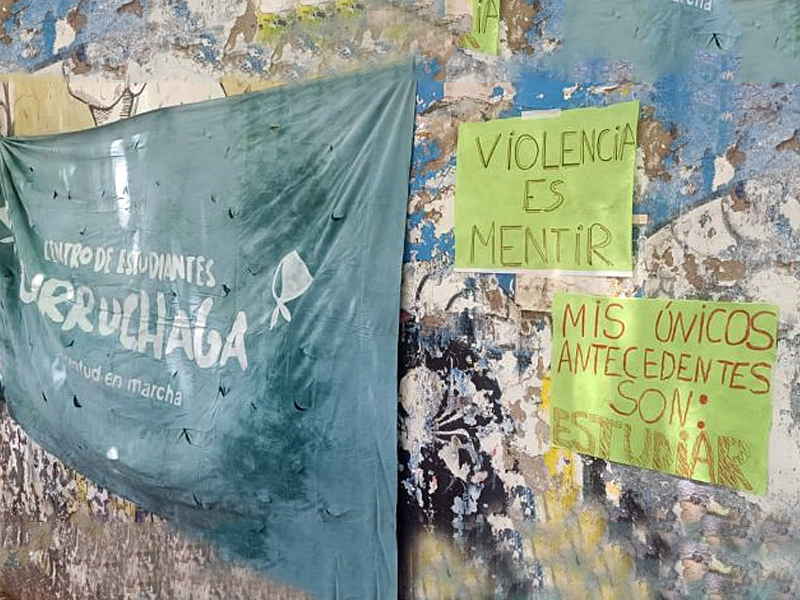 CENTRO DE ESTUDIANTES
URRUCHAGA
juventud en marcha
VIOLENCIA
ES
MENTIR
MIS ÚNICOS
ANTECEDENTES
SON:
ESTUDIAR